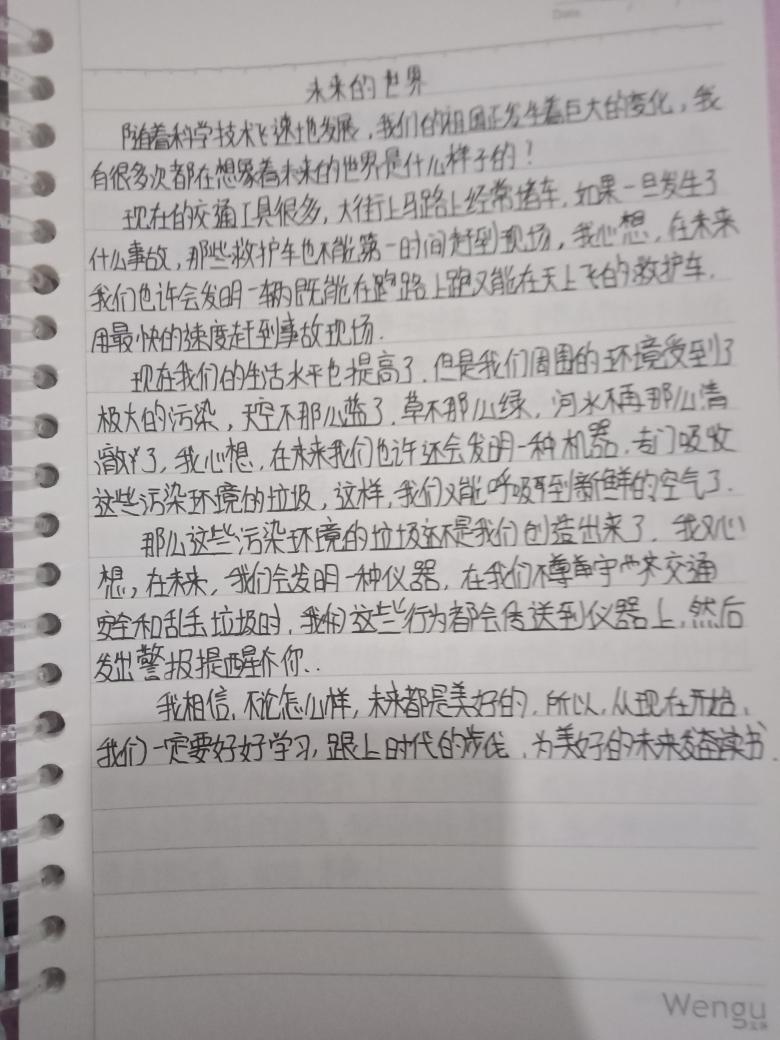 Date
未来的世界
随着科学技术飞速地发展，我们的祖国正发生着巨大的变化，我
有很多次都在想象着未来的世界是什么样子的？
现在的交通工具很多，大街上马路上经常堵车，如果一旦发生了
什么事故，那些救护车也不能第一时间赶到现场，我心想，在未来
我们也许会发明一辆既能在跑路上跑又能在天上飞的救护车，
用最快的速度赶到事故现场.
现在我们的生活水平也提高了.但是我们周围的环境受到了
极大的污染，天空不那么蓝了.草不那么绿，河水不再那么清
澈了，我心想，在未来我们也许还会发明一种机器，专门吸收
这些污染环境的垃圾，这样，我们又能呼吸到新鲜的空气了.
那么这些污染环境的垃圾还不是我们创造出来了.我又心
想，在未来，我们会发明一种仪器，在我们不尊守交通
安全和乱丢垃圾时，我们这些行为都会传送到仪器上，然后
发出警报提醒你..
我相信、不论怎么样，未来都是美好的，所以，从现在开始、
我们一定要好好学习，跟上时代的步伐，为美好的未来发奋读书.
Wengu